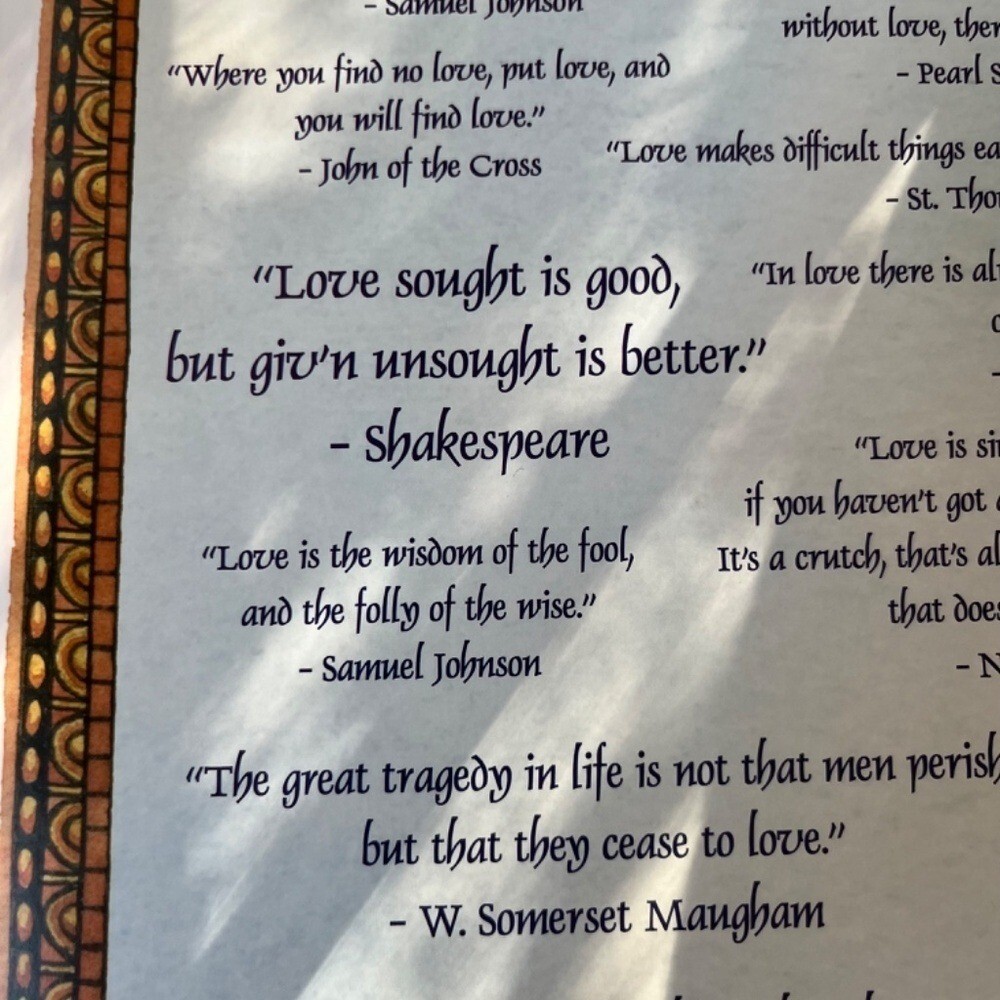 - Samuel Johnson
"Where you find no love, put love, and
you will find love."
- John of the Cross
"Love sought is good,
but giv'n unsought is better."
- Shakespeare
"Love is the wisdom of the fool,
and the folly of the wise."
- Samuel Johnson
"The great tragedy in life is not that men perish
but that they cease to love."
- W. Somerset Maugham
without love,
- Pearl
"Love makes difficult things
- St.
"In love there is
"Love is
if you haven't got
It's a crutch, that's
that